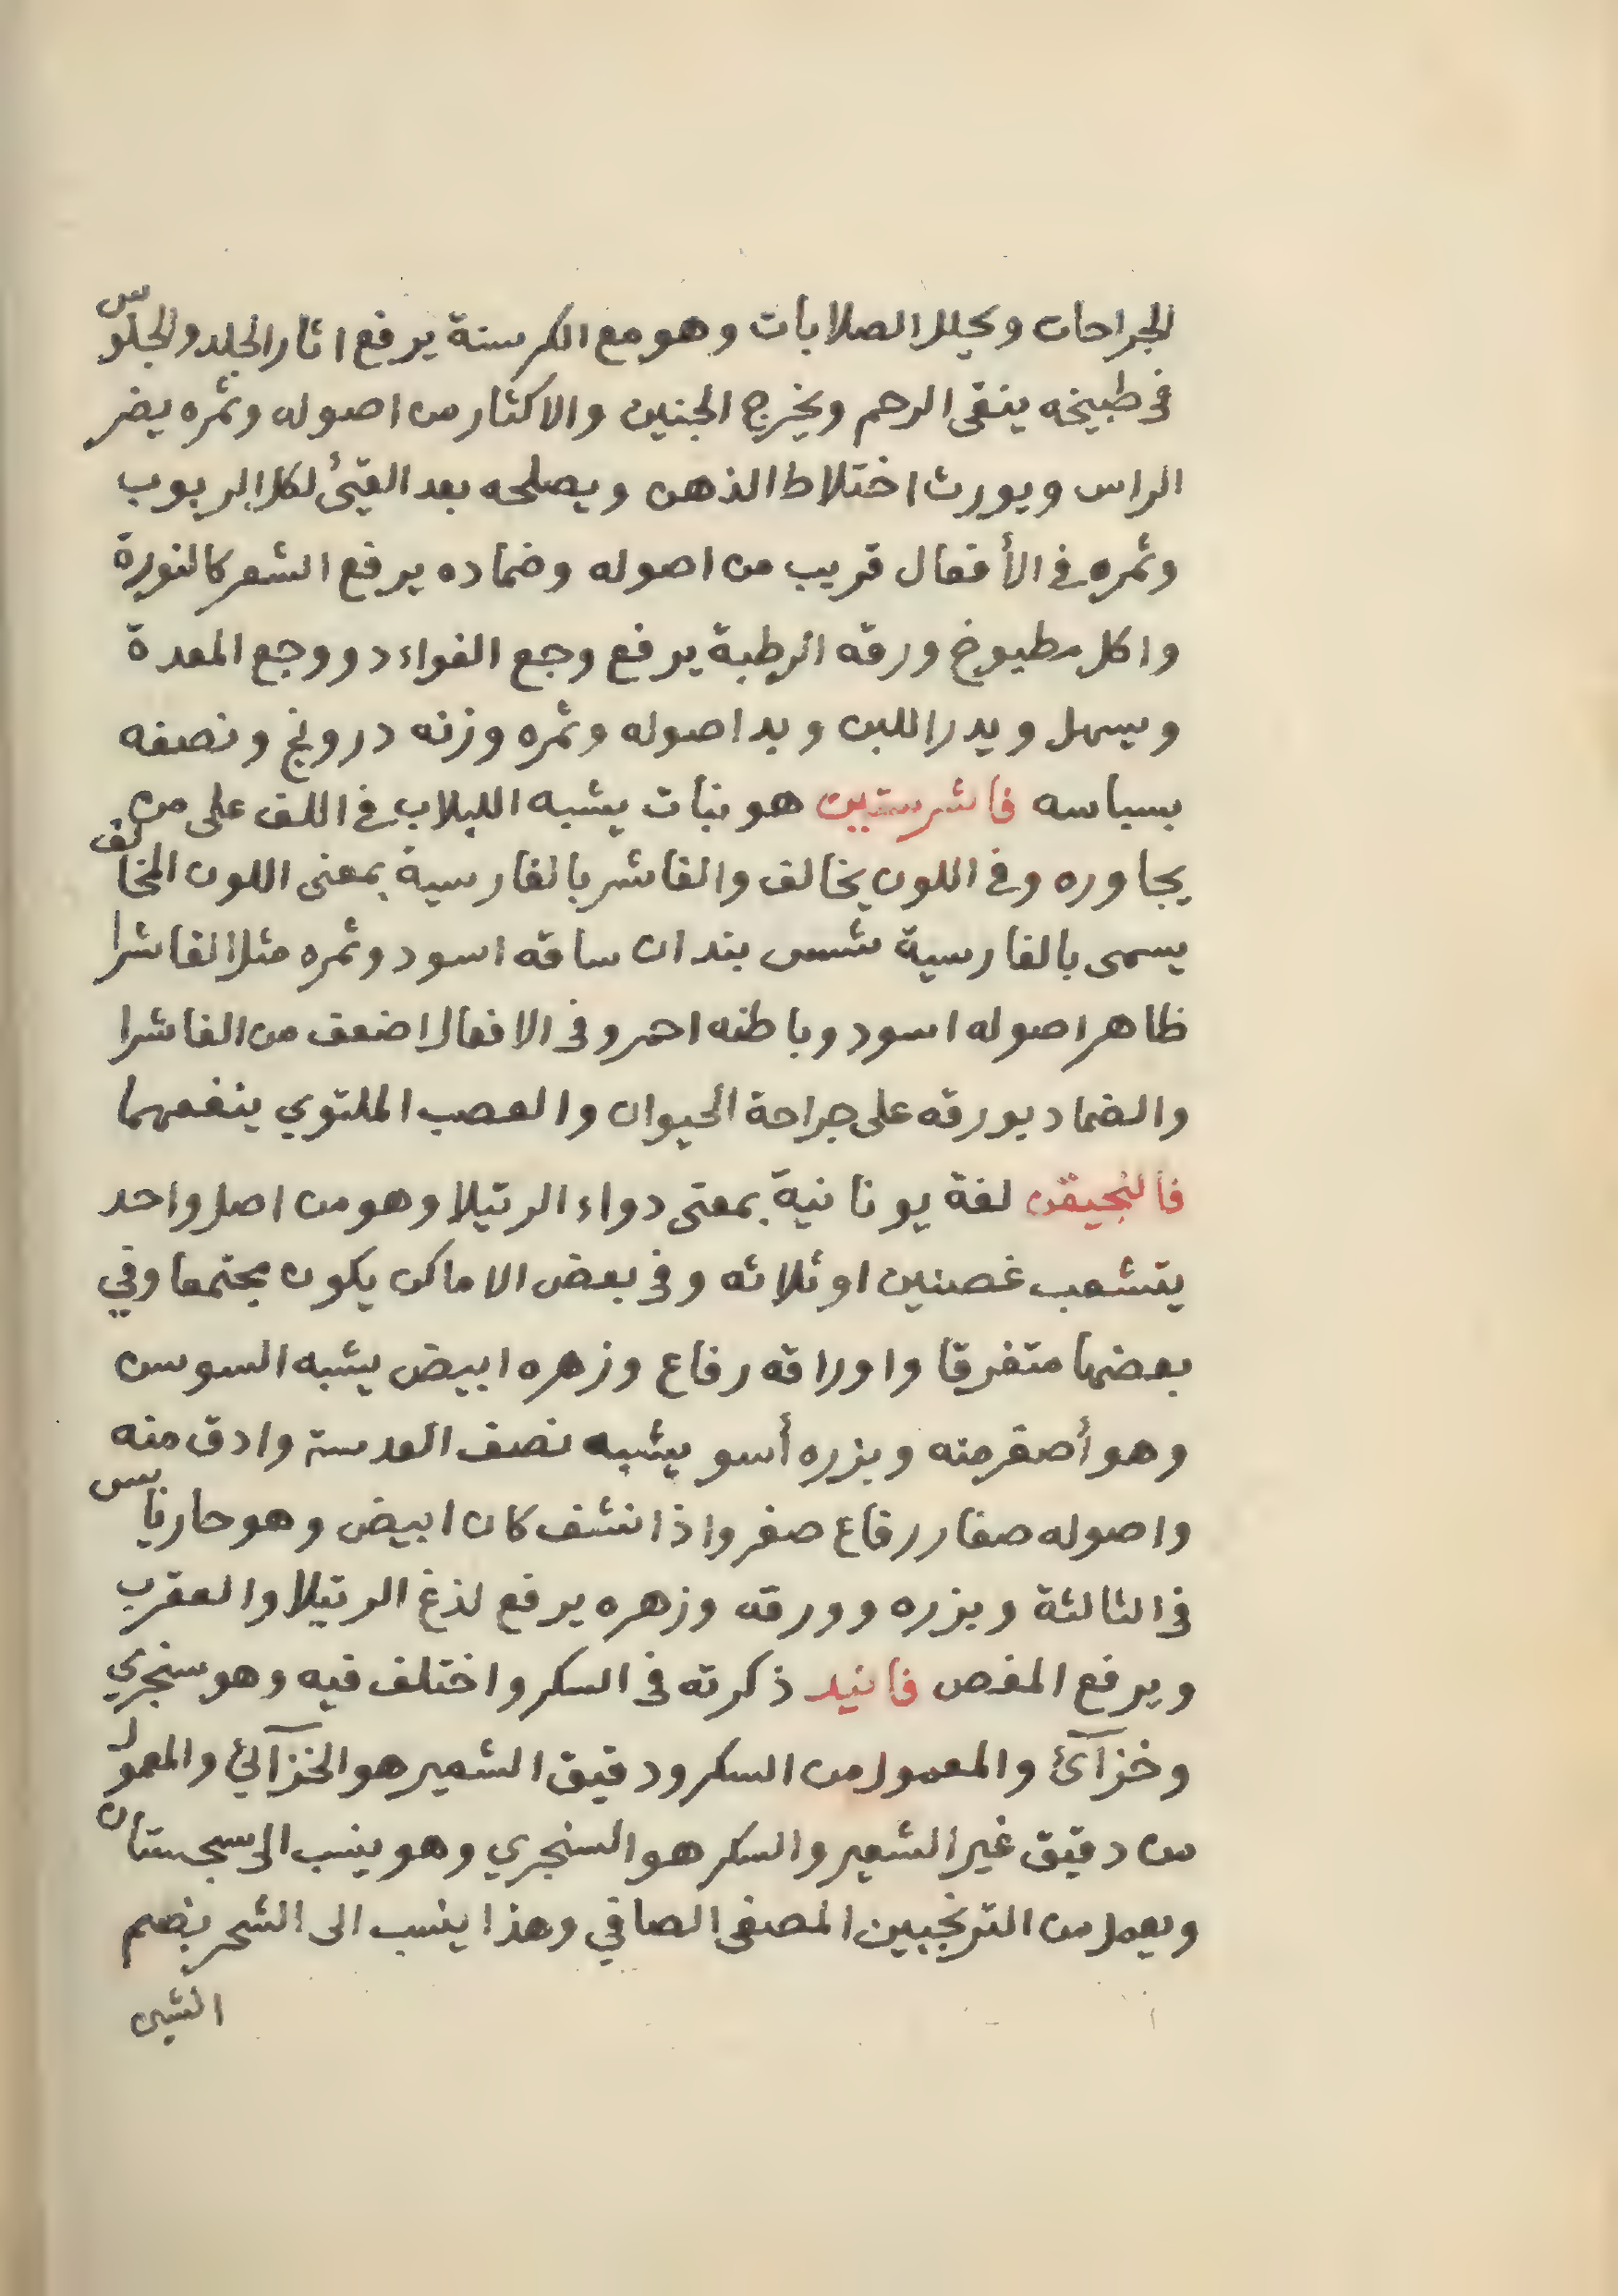 الجراحات ويحلل الصلابات وهو مع الكرسنة يرفع اثار الجلد والجلوس
في طبيخه ينقى الرحم ويخرج الجنين والاكثار من اصوله وثمره يضر
الراس ويورث اختلاط الذهن ويصلحه بعد القيئ لكل الربوب
وثمره في الأفعال قريب من اصوله وضماده يرفع الشعر كالنورة
واكل مطبوخ ورقه الرطبة يرفع وجع الفواءد ووجع المعدة
ويسهل ويدر اللبن وبد اصوله وثمره وزنه درونج ونصفه
بسباسه فاشرستين هو نبات يشبه اللبلاب في اللف على من
يجاوره وفي اللون يخالف والفاشر بالفارسية بمعنى اللون المخالف
يسمى بالفارسية شسس بندان ساقه اسود وثمره مثل الفاشرا
ظاهر اصوله اسود وباطنه احمر وفي الافعال اضعف من الفاشرا
والضماد بورقه على جراحة الحيوان والعصب الملتوي ينفعهما
فالنجيقن لغة يونانية بمعنى دواء الرتيلا وهو من اصل واحد
يتشعب غصنين او ثلاثه وفي بعض الاماكن يكون مجتمعا وفي
بعضها متفرقا واوراقه رفاع وزهره ابيض يشبه السوسن
وهو أصغر منه وبزره أسو يشبه نصف العدسة وادق منه
واصوله صغار رفاع صفر واذا نشف كان ابيض وهو حار يابس
في الثالثة وبزره وورقه وزهره يرفع لذغ الرتيلا والعقرب
ويرفع المغص فانيد ذكرته في السكر واختلف فيه وهو سنجري
وخزآئ والمعمول من السكر ودقيق الشعير هو الخزآئي والمعمول
من دقيق غير الشعير والسكر هو السنجري وهو ينسب الى سجستان
ويعمل من الترنجبين المصفى الصافي وهذا ينسب الى الشحر بضم
الشين